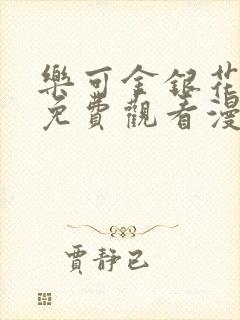 樂可金銀花
免費觀看漫
賈靜已